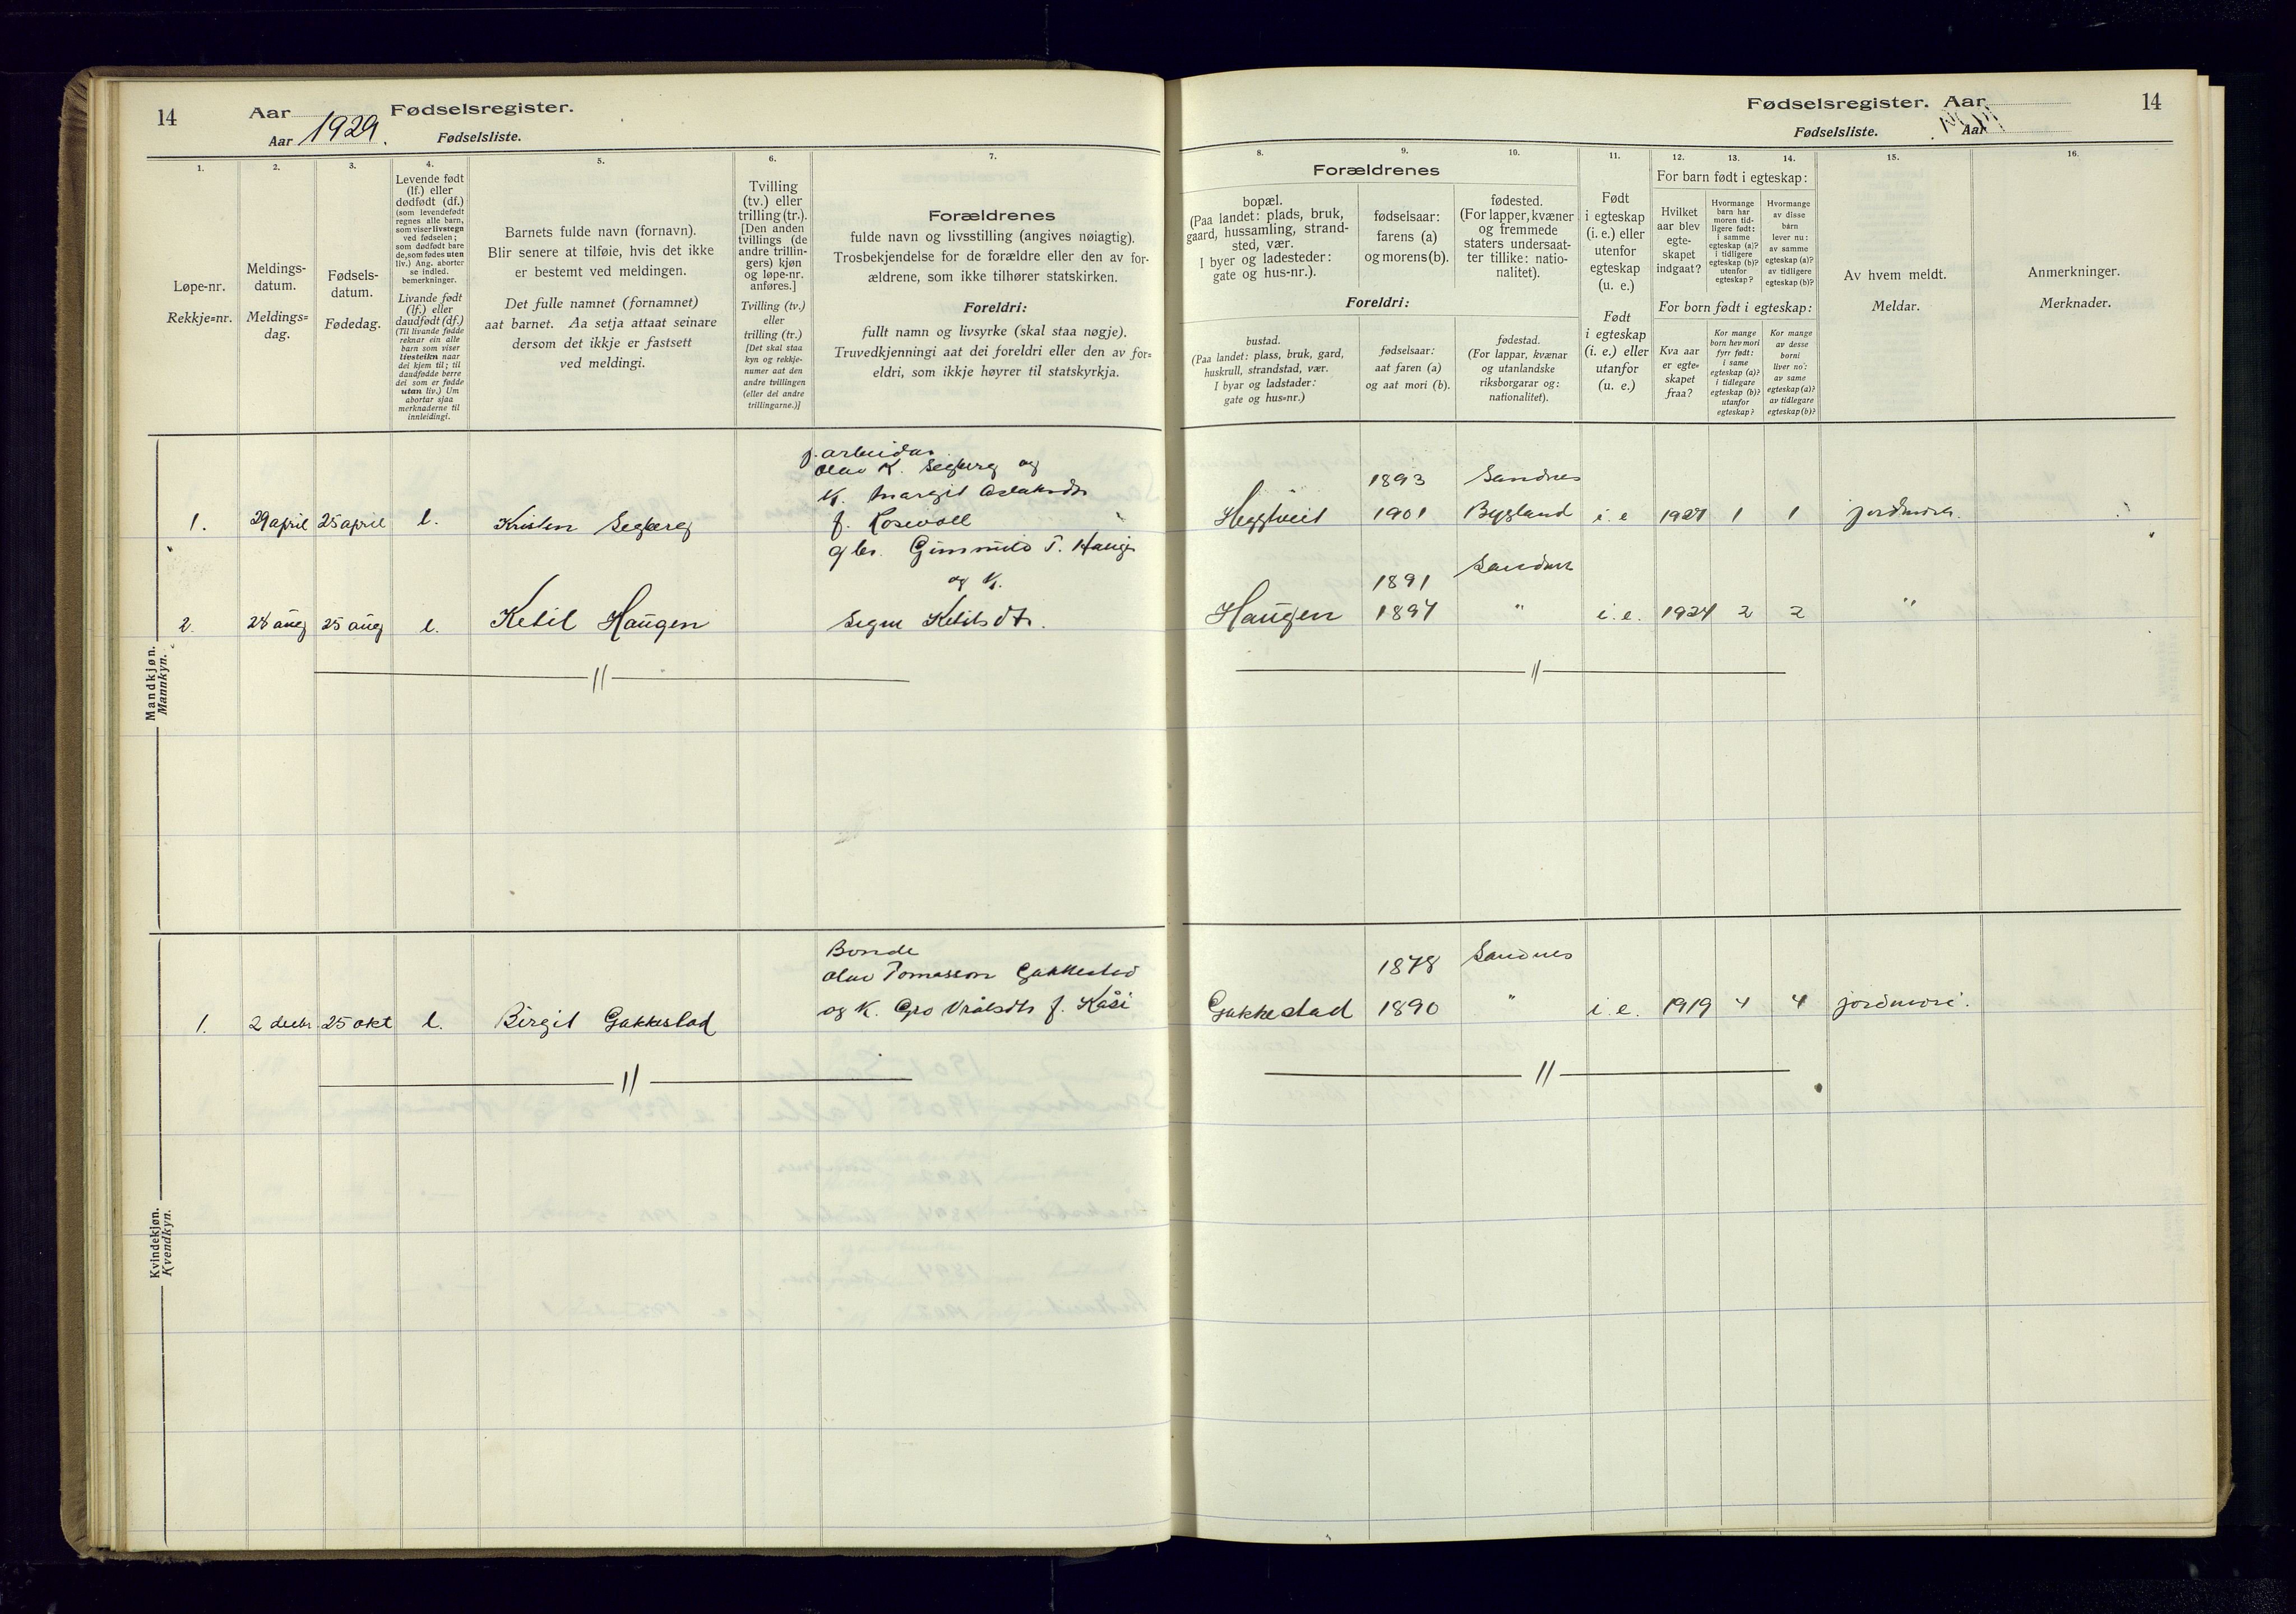 14
Aar
Fødselsregister.
Aar 1929.
Fødselsliste.
1.
Løpe-nr.
Rekkje=nr.
2.
Meldings-
datum.
Meldings=
dag.
3.
Fødsels-
datum.
Fødedag.
4.
Levende født
(lf.) eller
dødfødt (df.)
(som levendefødt
regnes alle barn,
som viser livstegn
ved fødselen;
som dødfødt bare
de, som fødes uten
liv.) Ang. aborter
se indled.
bemerkninger.
Livande født
(lf.) eller
daudfødt (df.)
(Til livande fødde
reknar ein alle
barn som viser
livsteikn naar
dei kjem til; til
daudfødde berre
dei som er fødde
utan liv.) Um
abortar sjaa
merknaderne til
innleidingi.
5.
Barnets fulde navn (fornavn).
Blir senere at tilføie, hvis det ikke
er bestemt ved meldingen.
Det fulle namnet (fornamnet)
aat barnet. Aa setja attaat seinare
dersom det ikkje er fastsett
ved meldingi.
6.
Tvilling
(tv.) eller
trilling (tr.).
[Den anden
tvillings (de
andre trillin-
gers) kjøn
og løpe-nr.
anføres.]
Tvilling (tv.)
eller
trilling (tr.)
[Det skal staa
kyn og rekkje-
numer aat den
andre tvillingen
(eller dei andre
trillingarne.)]
7.
Forældrenes
fulde navn og livsstilling (angives nøiagtig).
Trosbekjendelse for de forældre eller den av for-
ældrene, som ikke tilhører statskirken.
Foreldri:
fullt namn og livsyrke (skal staa nøgje).
Truvedkjenningi aat dei foreldri eller den av for=
eldri, som ikkje høyrer til statskyrkja.
Mandkjøn.
Mannkyn.
j.arbeidar
Olav K. Segberg og
K. Margit Aslaksdtr
1. 29 april 25 april l. Kristen Segberg f. Rosevoll
gbr. Gunnuld T. Haugen
og K.
2. 28 aug 25 aug l. Ketil Haugen Signe Ketilsdtr.
Kvindekjøn.
Kvendkyn.
Bonde
Olav Tomasson Gakkestad
og K. Gro Vråls dtr f. Kåsi
1. 2 decbr. 25 okt l. Birgit Gakkestad
Fødselsregister. Aar
14
Fødselsliste.
Aar
8.
Forældrenes
bopæl.
(Paa landet: plads, bruk,
gaard, hussamling, strand-
sted, vær.
I byer og ladesteder:
gate og hus-nr.).
Foreldri:
bustad.
(Paa landet: plass, bruk, gard,
huskrull, strandstad, vær.
I byar og ladstader:
gate og hus=nr.)
9.
fødselsaar:
farens (a)
og morens (b).
fødselsaar:
aat faren (a)
og aat mori (b).
10.
fødested.
(For lapper, kvæner
og fremmede
staters undersaat-
ter tillike: natio-
nalitet).
fødestad.
(For lappar, kvænar
og utanlandske
riksborgarar og:
nationalitet).
11.
Født
i egteskap
(i. e.) eller
utenfor
egteskap
(u. e.)
Født
i egteskap
(i. e.) eller
utanfor
(u. e.)
12.
13.
14.
For barn født i egteskap:
Hvilket
aar blev
egte-
skapet
indgaat?
Hvormange
barn har
moren tid-
ligere født:
i samme
egteskap (a)?
i tidligere
egteskap (b)?
utenfor
egteskap?
Hvormange
av disse
barn
lever nu:
av samme
egteskap (a)?
av tidligere
egteskap (b)?
For born født i egteskap:
Kva aar
er egte=
skapet
fraa?
Kor mange
born hev mori
fyrr født:
i same
egteskap (a)?
i tidlegare
egteskap (b)?
utanfor
egteskap?
Kor mange
av desse
borni
liver no:
av same
egteskap (a)?
av tidlegare
egteskap (b)?
15.
Av hvem meldt.
Meldar.
16.
Anmerkninger.
Merknader.
1893 Sandnes
Heggtveit 1901 Bygland i. e 1927 1 1 jordmora.
1891 Sandnes
Haugen 1897 " i. e. 1924 2 2 "
1878 Sandnes
Gakkestad 1890 " i. e. 1919 4 4 jordmori.